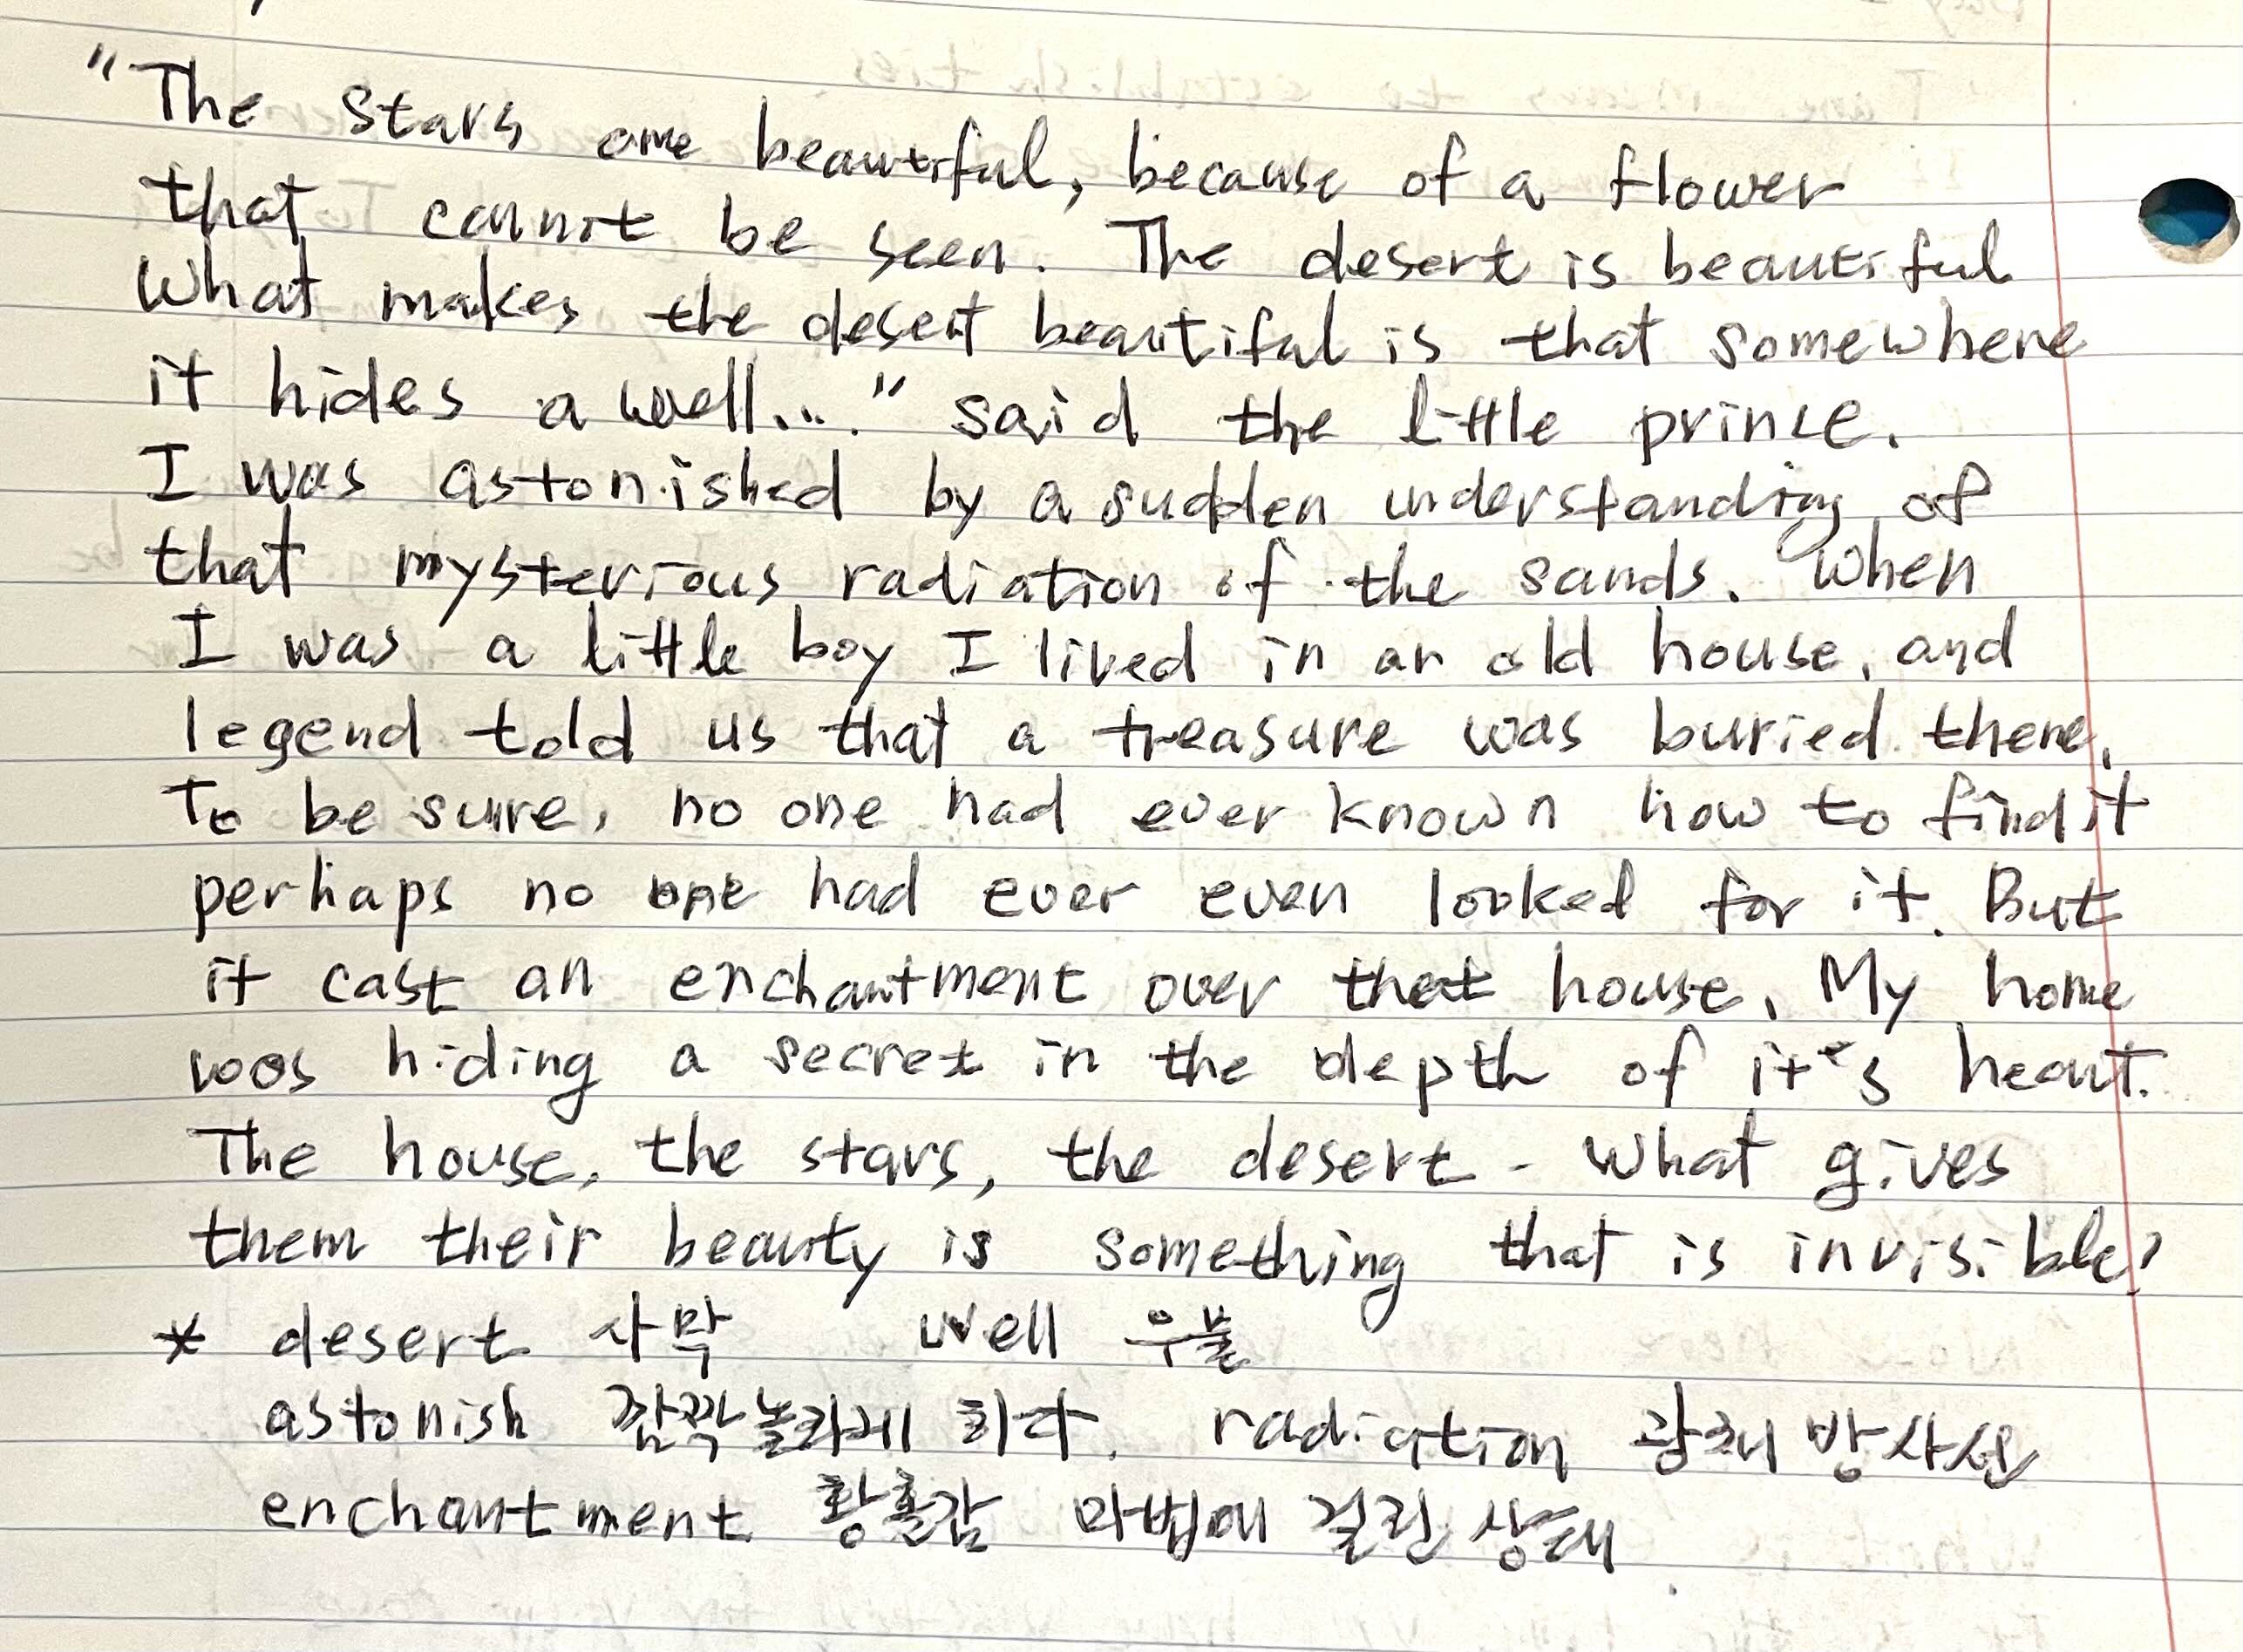 "The stars are beautiful, because of a flower
that cannot be seen. The desert is beautiful
What makes the desert beautiful is that somewhere
it hides a well...." said the little prince.
I was astonished by a sudden understanding of
that mysterious radiation of the sands. When
I was a little boy I lived in an old house, and
legend told us that a treasure was buried there.
To be sure, no one had ever known how to find it
perhaps no one had ever even looked for it. But
it cast an enchantment over that house. My home
was hiding a secret in the depth of it's heart.
The house, the stars, the desert - what gives
them their beauty is something that is invisible?
* desert 사막 well 우물
astonish 깜짝놀라게 하다. radiation 광채 방사선
enchantment 황홀감 마법에 걸린 상태